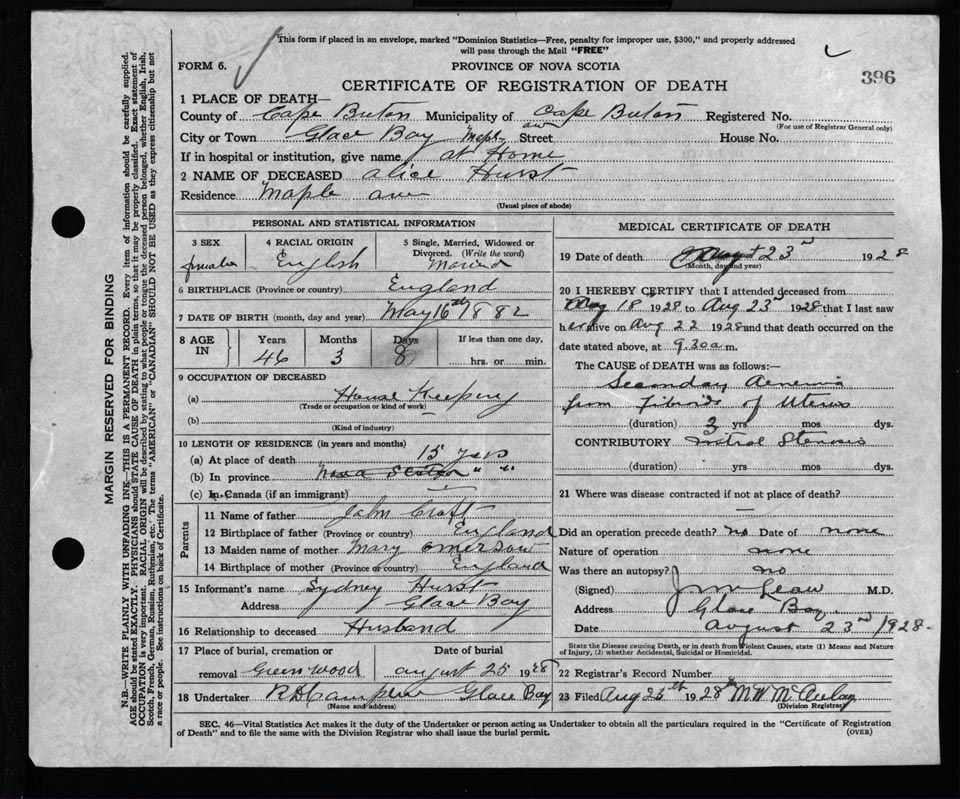 This form if placed in an envelope, marked "Dominion Statistics—Free, penalty for improper use, $300," and properly addressed
will pass through the Mail "FREE"
FORM 6. PROVINCE OF NOVA SCOTIA
396
CERTIFICATE OF REGISTRATION OF DEATH
1 PLACE OF DEATH—
County of Cape Breton Municipality of Cape Breton Registered No.
(For use of Registrar General only)
City or Town Glace Bay Maple ave Street House No.
If in hospital or institution, give name at Home
2 NAME OF DECEASED alice Hurst
Residence Maple ave
(Usual place of abode)
PERSONAL AND STATISTICAL INFORMATION
3 SEX 4 RACIAL ORIGIN 5 Single, Married, Widowed or
Divorced. (Write the word)
female English Married
6 BIRTHPLACE (Province or country) England
7 DATE OF BIRTH (month, day and year) May 16th 1882
8 AGE IN Years Months Days If less than one day,
46 3 8 hrs. or min.
9 OCCUPATION OF DECEASED
(a) House Keeping
(Trade or occupation or kind of work)
(b)
(Kind of industry)
10 LENGTH OF RESIDENCE (in years and months)
(a) At place of death 15 years
(b) In province Nova Scotia " "
(c) In Canada (if an immigrant)
Parents
11 Name of father John Croft
12 Birthplace of father (Province or country) England
13 Maiden name of mother Mary Emerson
14 Birthplace of mother (Province or country) England
15 Informant's name Sydney Hurst
Address Glace Bay
16 Relationship to deceased Husband
17 Place of burial, cremation or Date of burial
removal Greenwood august 25 1928
18 Undertaker Glace Bay
(Name and address)
MEDICAL CERTIFICATE OF DEATH
19 Date of death August 23rd 1928
(Month, day and year)
20 I HEREBY CERTIFY that I attended deceased from
Aug 18 1928 to Aug 23rd 1928 that I last saw
her alive on Aug 22 1928 and that death occurred on the
date stated above, at 9.30 a m.
The CAUSE of DEATH was as follows:—
Secondary Aenemia
from Fibroids of Uterus
(duration) 3 yrs. mos. dys.
CONTRIBUTORY mitral Stenosis
(duration) yrs. mos. dys.
21 Where was disease contracted if not at place of death?
Did an operation precede death? no Date of none
Nature of operation none
Was there an autopsy? no
(Signed) M.D.
Address Glace Bay
Date august 23rd 1928
State the Disease causing Death, or in death from Violent Causes, state (1) Means and Nature
of Injury, (2) whether Accidental, Suicidal or Homicidal.
22 Registrar's Record Number
23 Filed Aug 25th 1928 M W McAulay
(Division Registrar)
SEC. 46—Vital Statistics Act makes it the duty of the Undertaker or person acting as Undertaker to obtain all the particulars required in the "Certificate of Registration
of Death" and to file the same with the Division Registrar who shall issue the burial permit.
(OVER)
MARGIN RESERVED FOR BINDING
N.B.—WRITE PLAINLY WITH UNFADING INK—THIS IS A PERMANENT RECORD. Every item of information should be carefully supplied.
AGE should be stated EXACTLY. PHYSICIANS should STATE CAUSE OF DEATH in plain terms, so that it may be properly classified. Exact statement of
OCCUPATION is very important. RACIAL ORIGIN will be described by stating to what people or tongue the deceased person belonged, whether English, Irish,
Scotch, French, German, Russian, Ruthenian, etc. The terms "AMERICAN" or "CANADIAN" SHOULD NOT BE USED as they express citizenship but not
a race or people. See instructions on back of Certificate.